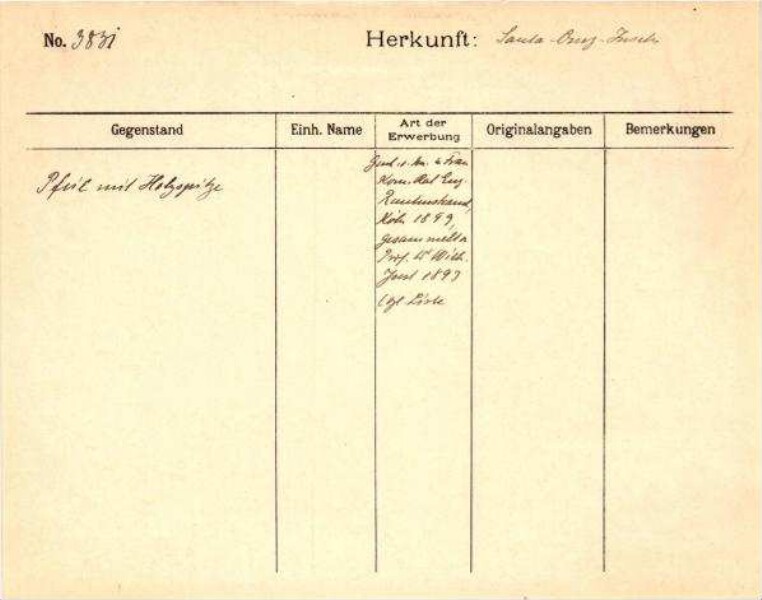 No. 3831
Herkunft: Santa-Cruz-Inseln
Gegenstand
Einh. Name
Art der
Erwerbung
Originalangaben
Bemerkungen
Pfeil mit Holzspitze
u. Frau
Kom. Rat Eug.
Rautenstrauch,
Köln 1899,
gesammelt v.
Prof. Dr Wilh.
Joest 1897
Liste